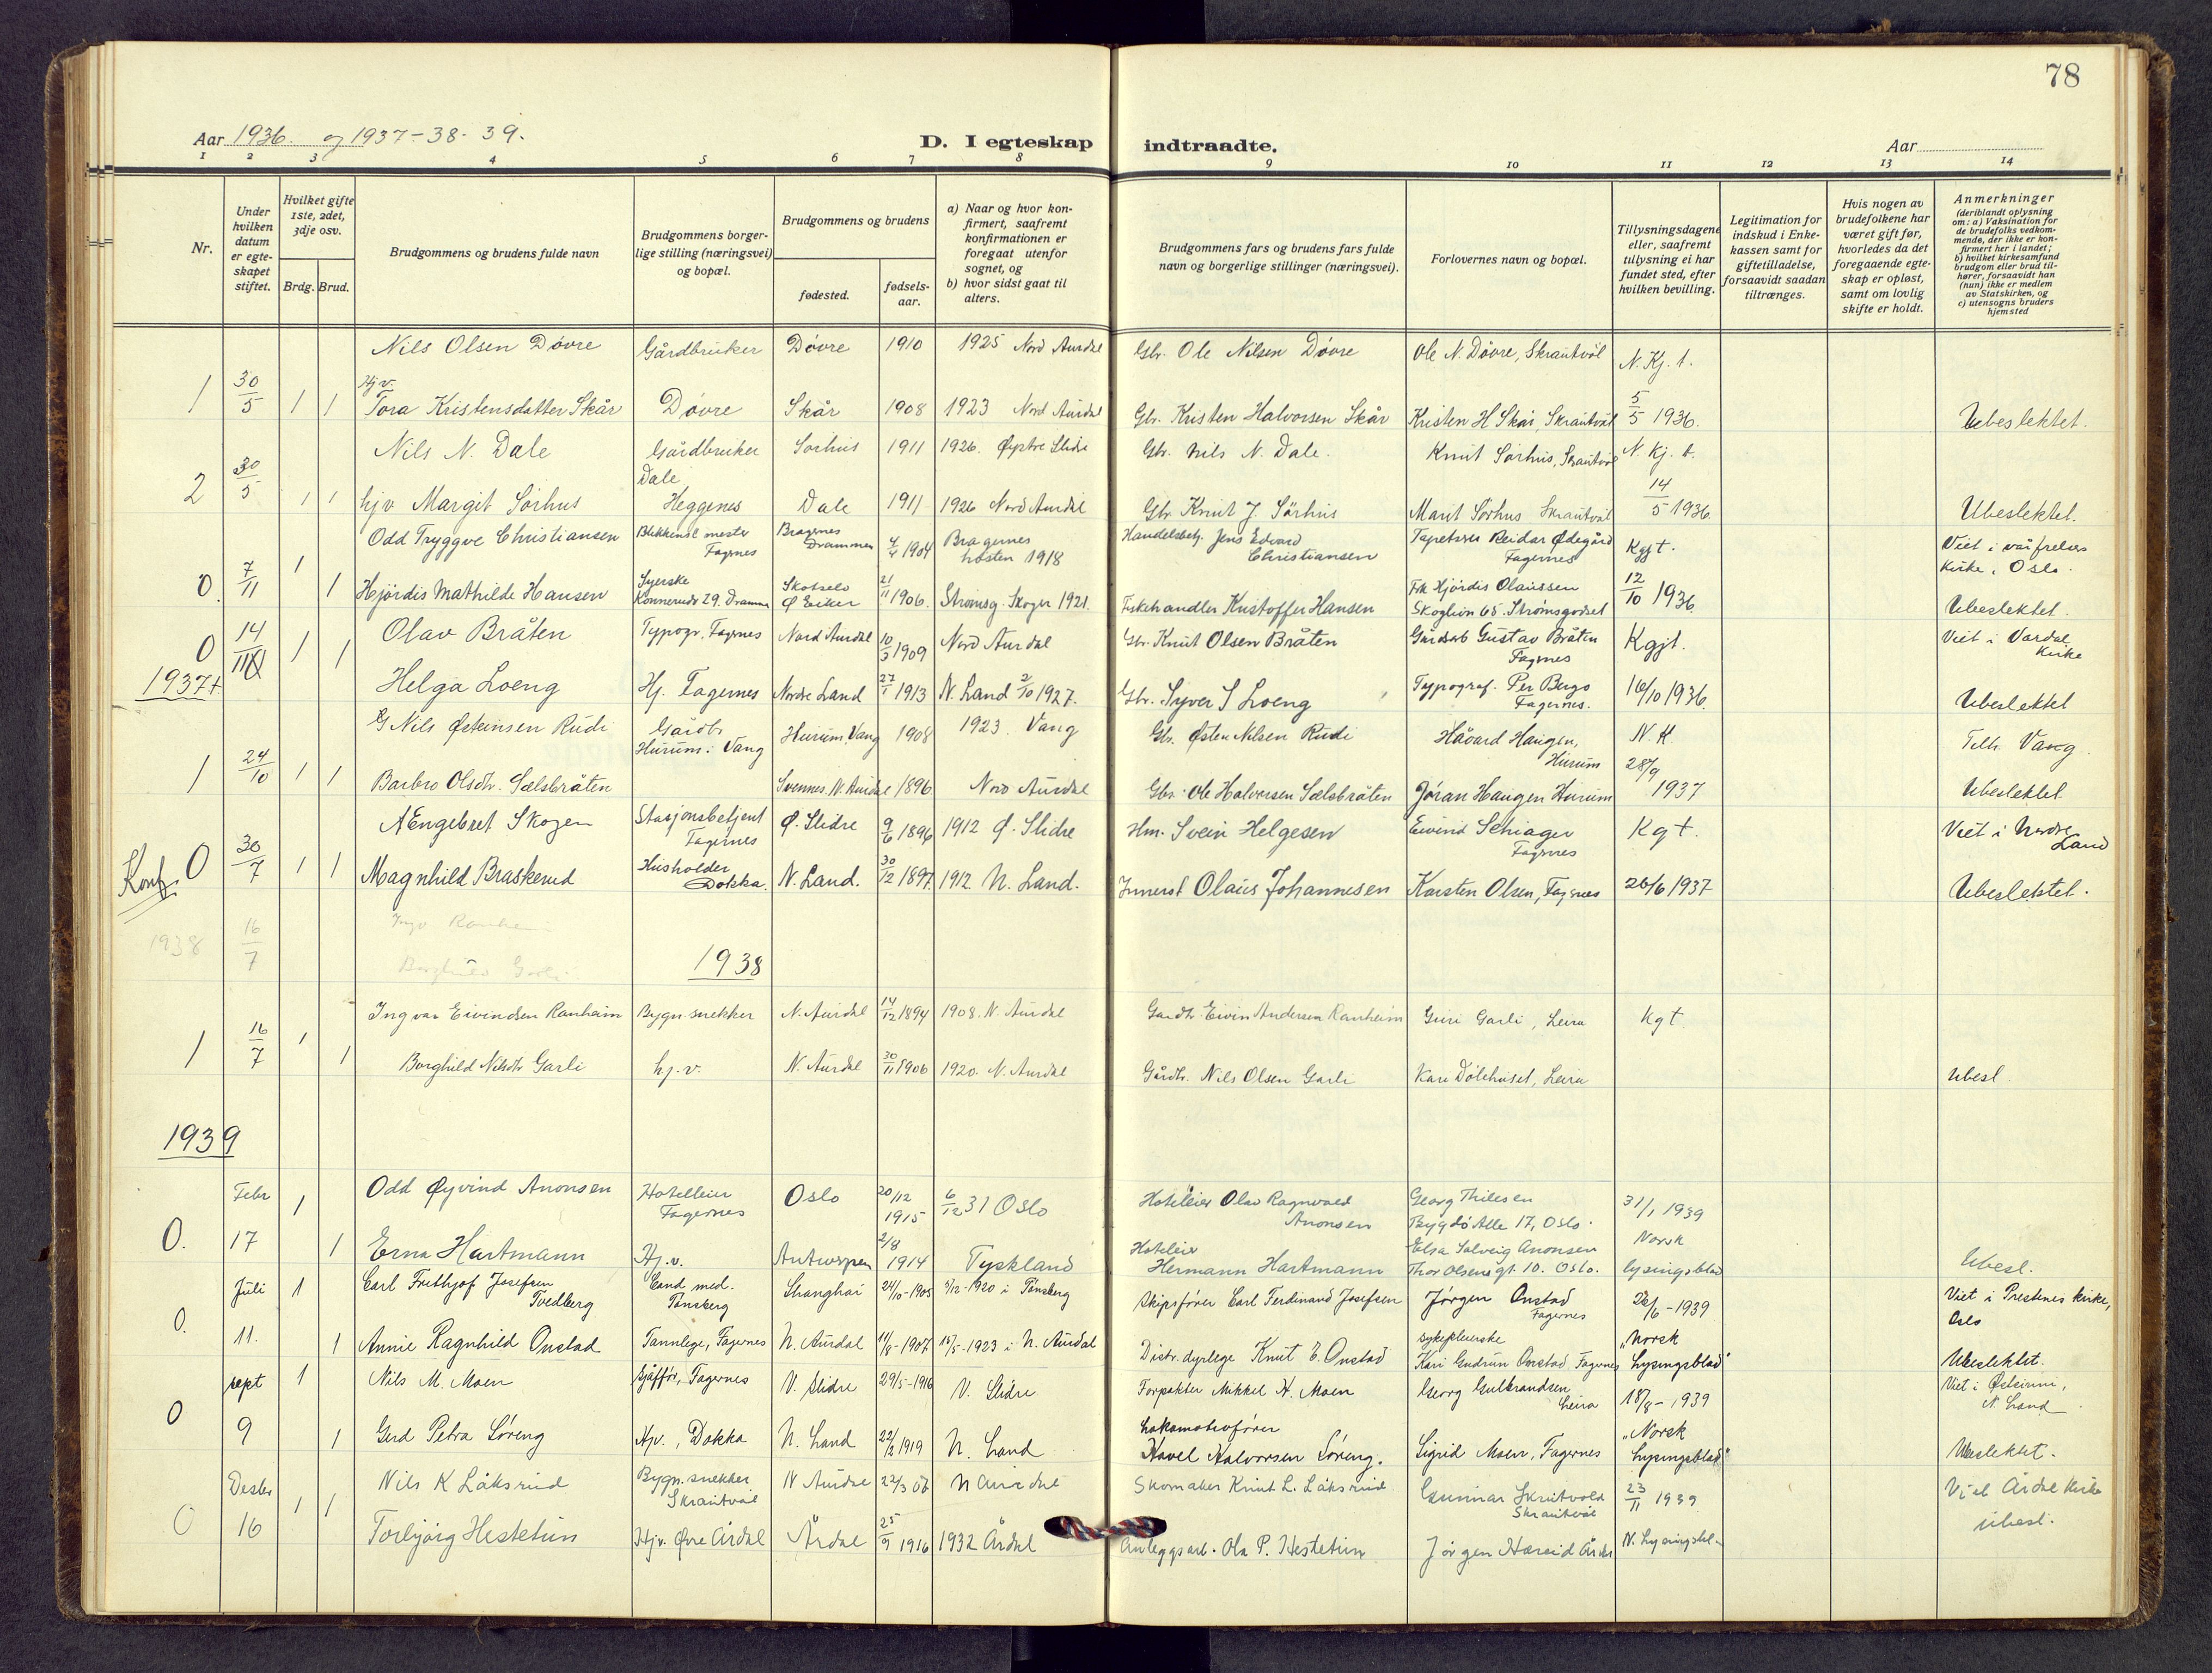 78
Aar 1936. og 1937-38-39.
D. I egteskap indtraadte.
Aar
1 2 3 4 5 6 7 8 9 10 11 12 13 14
Nr.
Under hvilken datum er egteskapet stiftet.
Hvilket gifte 1ste, 2det, 3dje osv.
Brdg. Brud.
Brudgommens og brudens fulde navn
Brudgommens borgerlige stilling (næringsvei) og bopæl.
Brudgommens og brudens
fødested.
fødselsaar.
a) Naar og hvor konfirmert, saafremt konfirmationen er foregaat utenfor sognet, og
b) hvor sidst gaat til alters.
Brudgommens fars og brudens fars fulde navn og borgerlige stillinger (næringsvei).
Forlovernes navn og bopæl.
Tillysningsdagene eller, saafremt tillysning ei har fundet sted, efter hvilken bevilling.
Legitimation for indskud i Enkekassen samt for giftetilladelse, forsaavidt saadan tiltrænges.
Hvis nogen av brudefolkene har været gift før, hvorledes da det foregaaende egteskap er opløst, samt om lovlig skifte er holdt.
Anmerkninger
(deriblandt oplysning om: a) Vaksination for de brudefolks vedkommende, der ikke er konfirmert her i landet; b) hvilket kirkesamfund brudgom eller brud tilhører, forsaavidt han (hun) ikke er medlem av Statskirken, og c) utensogns bruders hjemsted
Nils Olsen Døvre Gårdbruker Døvre 1910 1925 Nord Aurdal Gbr. Ole Nilsen Døvre Ole N. Døvre, Skrautvål N. Kj. t.
1 30/5 1 1 Hjv. Tora Kristensdatter Skår Døvre Skår 1908 1923 Nord Aurdal Gbr. Kristen Halvorsen Skår Kristen H Skår, Skrautvål 5/5 1936. Ubeslektet.
Nils N. Dale Gårdbruker Sørhus 1911 1926. Øystre Slidre Gbr. Nils N. Dale. Knut Sørhus, Skrautvål N. Kj. t.
2 30/5 1 1 hjv Margit Sørhus Dale Heggenes Dale 1911 1926 Nord Aurdal Gbr. Knut J. Sørhus Marit Sørhus Skrautvål 14/5 1936. Ubeslektet.
Odd Tryggve Christiansen Blikkensl. mester Fagernes Bragernes Drammen 4/4 1904 Bragernes høsten 1918 Handelsbetj. Jens Edvard Christiansen Tapetserer Reidar Ødegård Fagernes Kgjt. Viet i vårfrelsers kirke, Oslo.
0. 7/11 1 1 Hjørdis Mathilde Hansen Syerske Konnerudg 29. Drammen Skotselv Ø Eiker 21/11 1906. Strømsg. Skoger 1921. Fiskehandler Kristoffer Hansen Frk Hjørdis Olaussen Skoglien 65. Strømsgodset 12/10 1936 Ubeslektet.
0 14/11 1 1 Olav Bråten Typogr. Fagernes Nord Aurdal 10/3 1909 Nord Aurdal Gbr. Knut Olsen Bråten Gårdarb Gustav Bråten Fagernes Kgjt. Viet i Vardal Kirke
1937+ Helga Loeng Hj. Fagernes Nordre Land 27/1 1913 N. Land 2/10 1927. Gbr. Syver S Loeng Typograf. Per Bergo Fagernes. 16/10 1936. Ubeslektet
G Nils Østensen Rudi Gårdbr Hurum i Vang Hurum Vang 1908 1923. Vang Gbr. Østen Nilsen Rudi Håvard Haugen, Hurum N. K. Tilh. Vang.
1 24/10 1 1 Barbro Olsdtr. Sælsbråten Svennes. N. Aurdal 1896 Nord Aurdal Gbr. Ole Halvorsen Sælsbråten Jøran Haugen Hurum 28/9 1937 Ubeslektet
Engebret Skogen Stasjonsbetjent Fagernes Ø. Slidre 9/6 1896 1912 Ø. Slidre Hm. Svein Helgesen Eivind Schiager Fagernes Kgt. Viet i Nordre Land
Konf. 0 30/7 1 1 Magnhild Braskerud Husholder Dokka. N. Land. 30/12 1897 1912 N. Land. Innerst Olaus Johannesen Karsten Olsen, Fagernes 26/6 1937 Ubeslektet.
1938 16/7
Borghild Garli 1938
Ingvar Eivindsen Ranheim Bygn. snekker N. Aurdal 14/12 1894 1908. N. Aurdal Gardb. Eivin Andersen Ranheim Guri Garli, Leira Kgt
1 16/7 1 1 Borghild Nilsdtr Garli hj. v. N. Aurdal 30/11 1906 1920. N. Aurdal Gårdb. Nils Olsen Garli Kari Dølehuset, Leira Ubesl.
1939
Febr 1 Odd Øyvind Aronsen Hotelleier Fagernes Oslo 20/12 1915 6/12 31 Oslo Hoteleier Olav Ragnvald Aronsen Georg Thilesen Bygdø Alle 17, Oslo. 31/1 1939
0. 17 1 Erna Hartmann Hj. v. Antwerpen 2/8 1914 Tyskland Hoteleier Hermann Hartmann Elsa Solveig Aronsen Thor Olsens gt. 10. Oslo. Norsk lysingsblad Ubesl.
Juli 1 Carl Frithjof Josefsen Tvedberg Cand med. Tønsberg Shanghai 24/10-1905 5/12-1920 i Tønsberg Skipsfører Carl Ferdinand Josefsen Jørgen Onstad Fagernes 26/6-1939 Viet i Prestenes kirke, Oslo
0. 11. 1 Annie Ragnhild Onstad Tannlege, Fagernes N. Aurdal 11/8-1907 15/5-1923 i N. Aurdal Distr. dyrlege Knut E. Onstad sykepleierske Kari Gudrun Onstad, Fagernes "Norsk Lysingsblad" Ubeslektet.
sept 1 Nils M. Moen Sjåffør, Fagernes V. Slidre 29/5-1916 V. Slidre Forpakter Mikkel N. Moen Georg Gulbrandsen Leira 18/8-1939 Viet i Østsinni, N. Land
0 9 1 Gerd Petra Løreng Hjv., Dokka N. Land 22/2 1919 N. Land Lokomotivfører Havel Halvorsen Løreng. Sigrid Moen, Fagernes "Norsk Lysingsblad" Ubeslektet.
Desbr 1 1 Nils K Låksrud Bygn. snekker Skrautvål N Aurdal 22/3 06 N Aurdal Skomaker Knut L. Låksrud Gunnar Skrutvold Skrautvål 23/11 1939 Viet Årdal Kirke
0 16 Torbjørg Hestetun Hjv. Øvre Årdal Årdal 25/9 1916 1932 Årdal Anleggsarb. Ola P. Hestetun Jørgen Hæreid Årdal N. Lysingsbl. Ubesl.